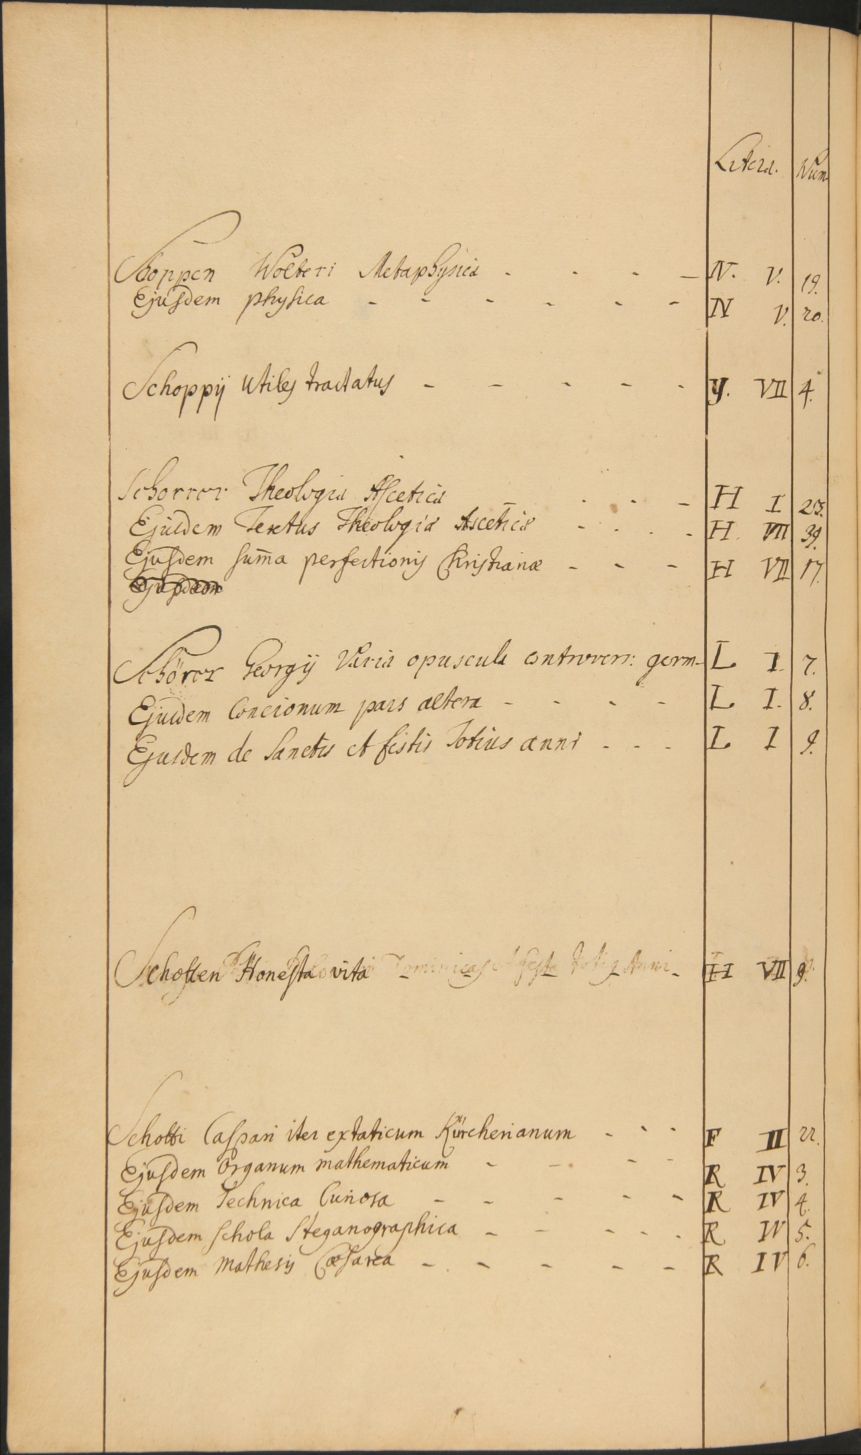 Litera. Num
Schoppen Wolteri Metaphysica - - - - N. V. 19.
Ejusdem physica - - - - - - N V. 20.
Schoppij utiles tractatus - - - - - Y. VII 4.
Schorrer Theologia Ascetica - - - H I 23.
Ejusdem Textus Theologiæ Asceticæ - - - - H. VII 39.
Ejusdem sum̄a perfectionis Christianæ - - - H VII 17.
Ejusdem
Schörer Georgij Varia opuscula controvers: germ- L I. 7.
Ejusdem Concionum pars altera - - - - L I. 8.
Ejusdem de Sanctis et festis Totius anni - - - L I 9.
Honesta vita - - - - H VII 9.
Schotti Caspari iter extaticum Kürcherianum - - - F II 22.
Ejusdem Organum mathematicum - - - - R IV 3.
Ejusdem Technica Curiosa - - - - - R IV 4.
Ejusdem Schola Steganographica - - - - - R IV 5.
Ejusdem Mathesis Cæsarea - - - - - R IV 6.